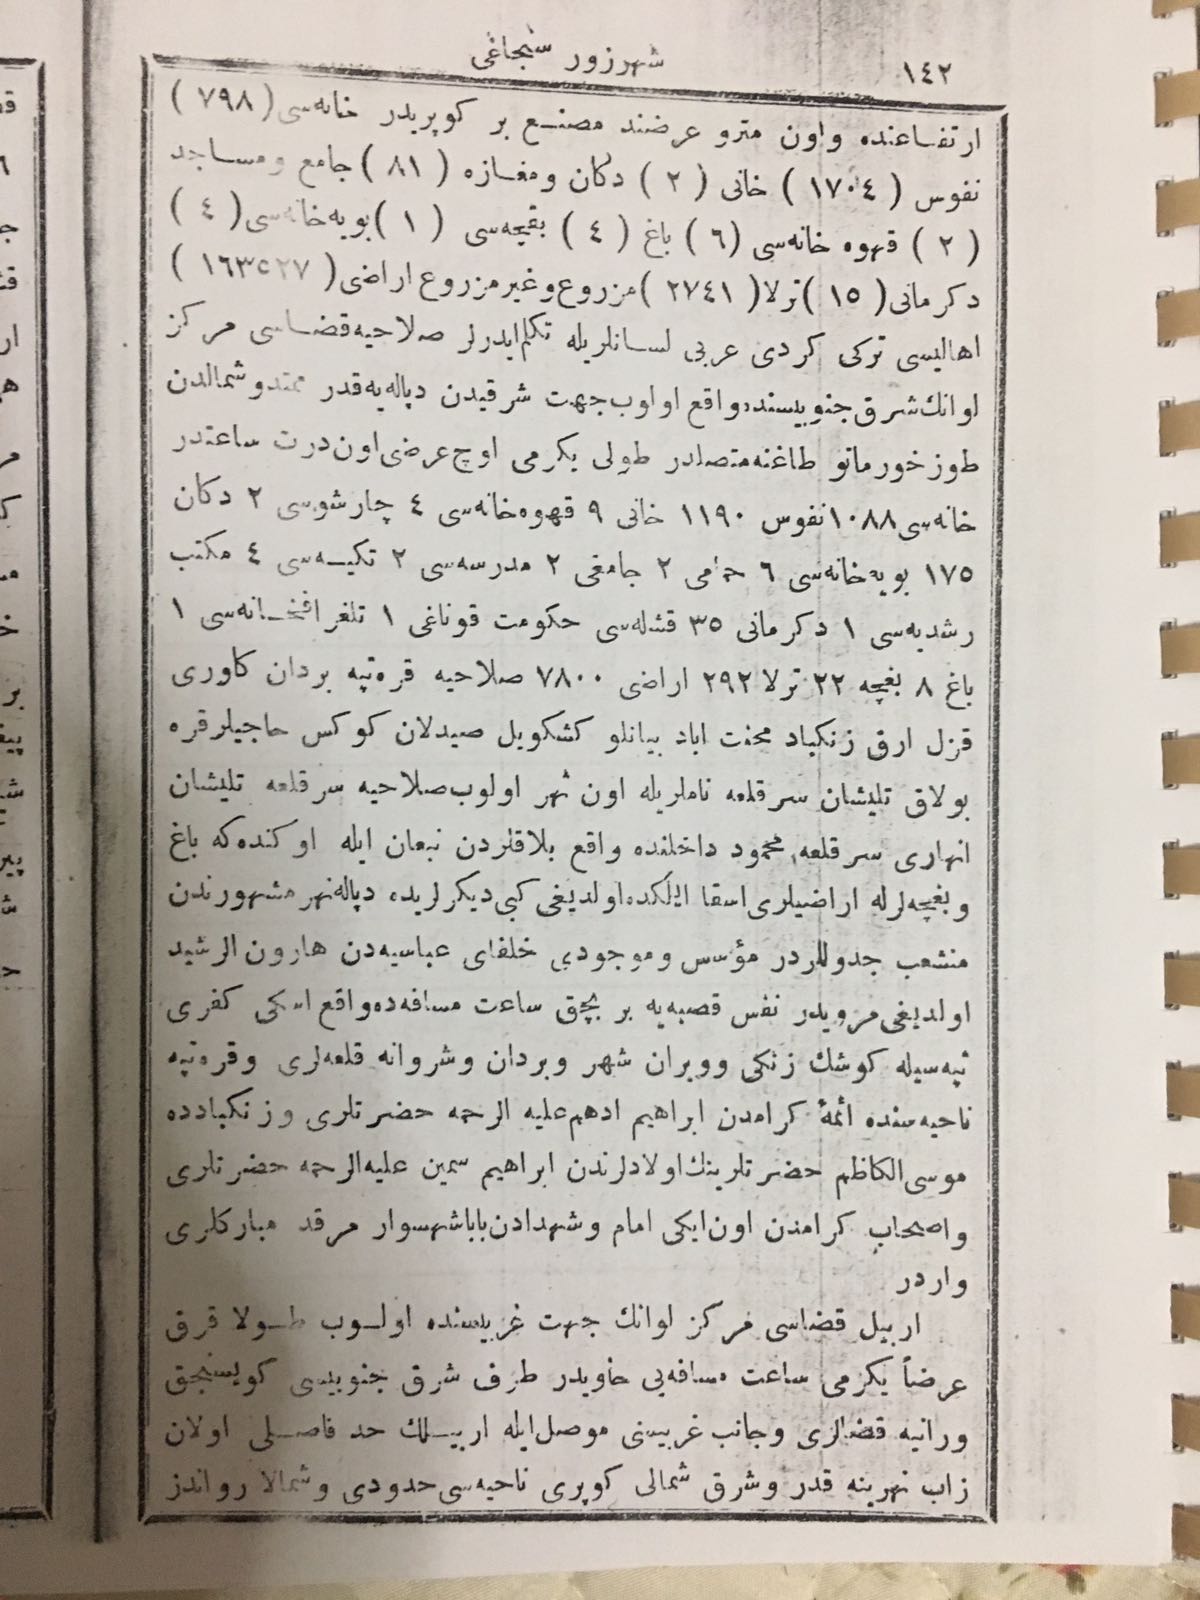 ١٤٢
شهرزور سنجاغی
ارتفاعنده واون مترو عرضنده مصنع بر كوپریدر خانه‌سی ( ٧٩٨ )
نفوس ( ١٧٠٤ ) خانی ( ٢ ) دكان ومغازه ( ٨١ ) جامع ومساجد
( ٢ ) قهوه خانه‌سی ( ٦ ) باغ ( ٤ ) بقچه‌سی ( ١ ) بویه‌خانه‌سی ( ٤ )
دكرمانی ( ١٥ ) ترلا ( ٢٧٤١ ) مزروع وغیر مزروع اراضی ( ١٦٣٥٢٧ )
اهالیسی تركی كردی عربی لسانلریله تكلم ایدرلر صلاحیه قضاسی مركز
لوانك شرق جنوبیسنده واقع اولوب جهت شرقیدن دیاله‌یه قدر ممتد و شمالدن
طوز خورماتو طاغنه متصلدر طولی یكرمی اوچ عرضی اون درت ساعتدر
خانه‌سی ١٠٨٨ نفوس ١١٩٠ خانی ٩ قهوه خانه‌سی ٤ چارشوسی ٢ دكان
١٧٥ بویه‌خانه‌سی ٦ حمامی ٢ جامعی ٢ مدرسه‌سی ٢ تكیه‌سی ٤ مكتب
رشدیه‌سی ١ دكرمانی ٣٥ قشله‌سی حكومت قوناغی ١ تلغرافخانه‌سی ١
باغ ٨ بغچه ٢٢ ترلا ٢٩٢ اراضی ٧٨٠٠ صلاحیه قره‌تپه بردان كاوری
قزل ارق زنكباد محنت اباد بیانلو كشكویل صیدلان كوكس حاجیلر قره
بولاق تلیشان سرقلعه ناملریله اون نهر اولوب صلاحیه سرقلعه تلیشان
انهاری سرقلعه، محمود داخلنده واقع بلاقلردن نبعان ایله اوكنده‌كه باغ
وبغچه‌لرله اراضیلری اسقا ایلكده اولدیغی كبی دیكرلریده دیاله نهر مشهورندن
منشعب جدوللردر مؤسس وموجودی خلفای عباسیه‌دن هارون الرشید
اولدیغی مرویدر نفس قصبه‌یه بر بچق ساعت مسافه‌ده واقع اسكی كفری
تپه‌سیله كوشك زنكی وویران شهر وبردان وشروانه قلعه‌لری وقره‌تپه
ناحیه‌سنده ائمهٔ كرامدن ابراهیم ادهم علیه الرحمه حضرتلری وزنكبادده
موسی الكاظم حضرتلرینك اولادلرندن ابراهیم سمین علیه الرحمه حضرتلری
واصحاب كرامدن اون ایكی امام وشهدادن باباشهسوار مرقد مباركلری
واردر
اربیل قضاسی مركز لوانك جهت غربیسنده اولوب طولا قرق
عرضاً یكرمی ساعت مسافه‌یی حاویدر طرف شرق جنوبیسی كویسنجق
ورانیه قضالری وجانب غربیسنی موصل ایله اربیلك حد فاصلی اولان
زاب نهرینه قدر وشرق شمالی كوپری ناحیه‌سی حدودی وشمالا رواندز